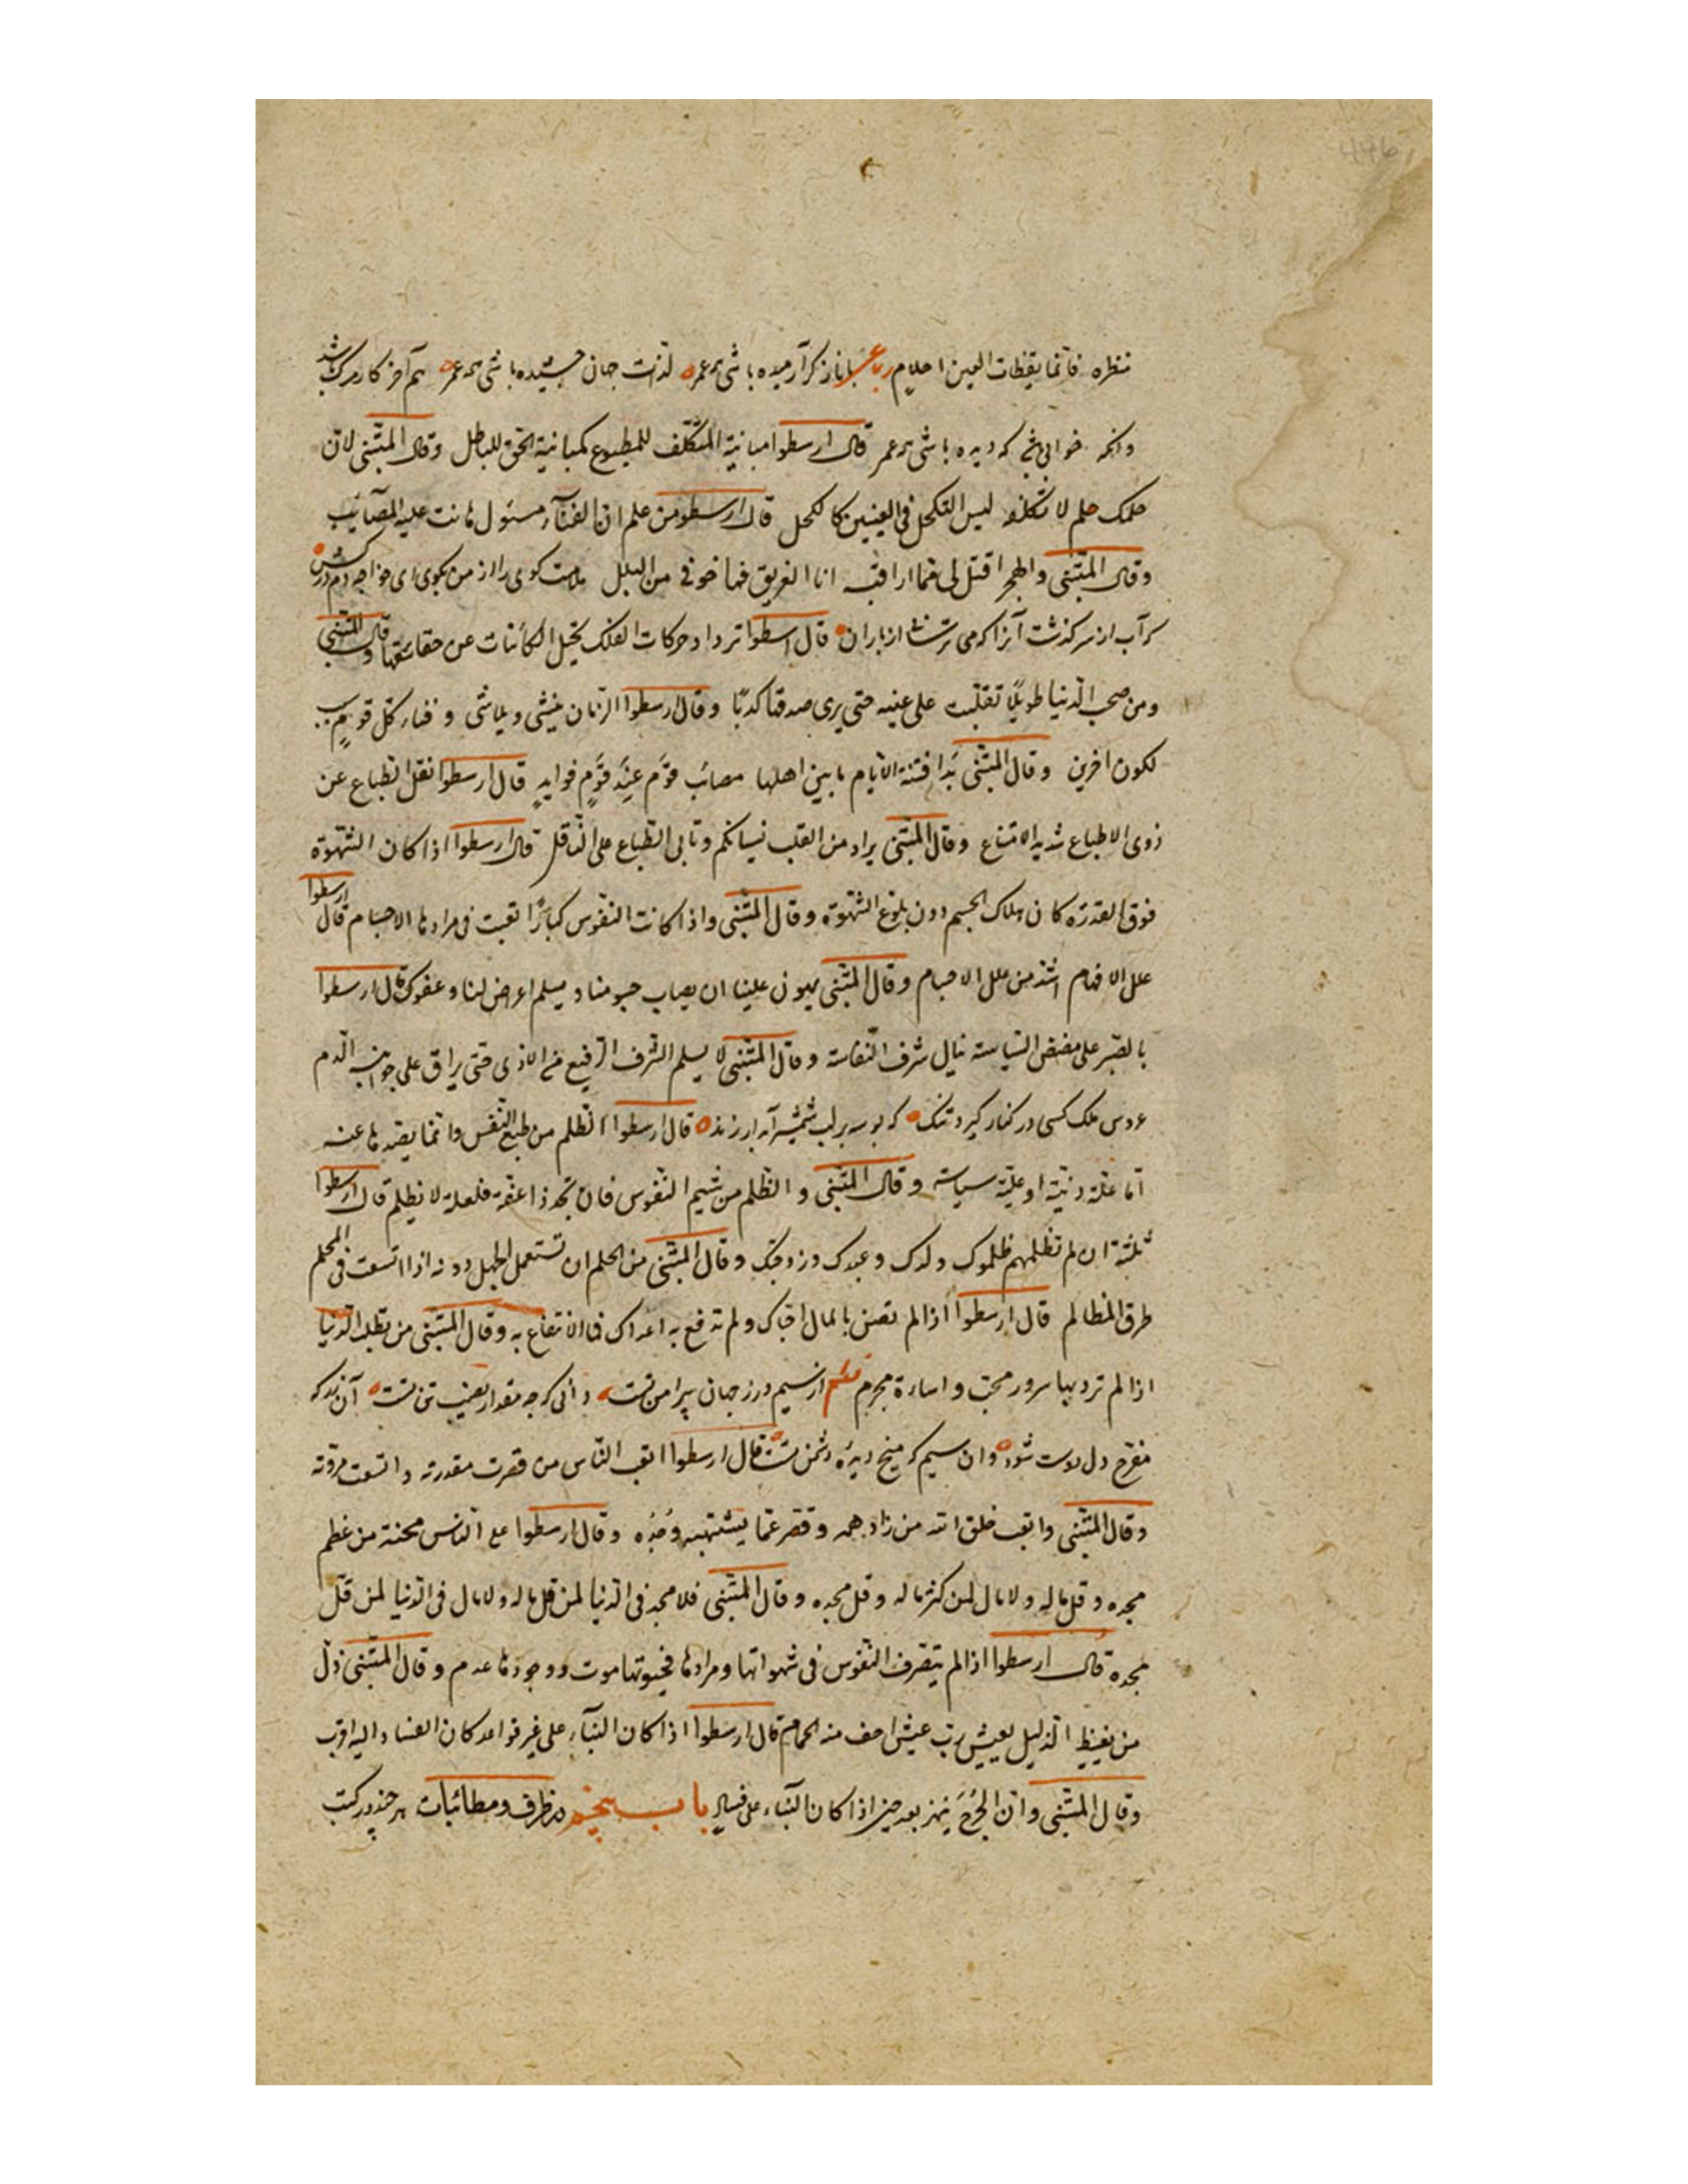 446
منظره فانما یقظات العین احلام رباعی با ناز کر آرمیده باشی همه عمر لذات جهان چشیده باشی همه عمر هم آخر کار مرک باشد
وانکه خوابی که دیده باشی همه عمر قال ارسطوا مباینة المتکلف للمطبوع کمباینة الحق للباطل وقال المتنبی لان
حلمک حلم لا تکلفه لیس التکحل فی العینین کالکحل قال ارسطو من علم ان الفناء مستول هانت علیه المصائب
وقال المتنبی والهجر اقتل لی مما اراقبه انا الغریق فما خوفی من البلل ملامت کوی را از من بکوی ای خواجه دم درکش
کر آب از سر کذشت آنرا که می ترسد از باران قال ارسطوا ترداد حرکات الفلک یحیل الکائنات عن حقائقها وقال المتنبی
ومن صحب الدنیا طویلا تقلبت علی عینه حتی یری صدقها کذبا وقال ارسطوا الزمان ینشی ویلاشی و فناء کل قوم سبب
لکون اخرین وقال المتنبی بذا قضت الایام ما بین اهلها مصائب قوم عند قوم فواید قال ارسطوا نقل الطباع عن
ذوی الاطباع شدید الامتناع وقال المتنبی یراد من القلب نسیانکم وتابی الطباع علی الناقل قال ارسطوا اذا کان الشهوة
فوق القدرة کان هلاک الجسم دون بلوغ الشهوة وقال المتنبی واذا کانت النفوس کبارا تعبت فی مرادها الاجسام قال ارسطوا
علل الافهام اشد من علل الاجسام وقال المتنبی یهون علینا ان یصاب جسومنا ویسلم اعراض لنا وعقول قال ارسطوا
بالصبر علی مضض السیاسة ینال شرف النفاسة وقال المتنبی لا یسلم الشرف الرفیع من الاذی حتی یراق علی جوانبه الدم
عروس ملک کسی در کنار کیرد تنک که بوسه بر لب شمشیر آبدار زند قال ارسطوا الظلم من طبع النفس وانما یصدها عنه
اما علة دنیة او علة سیاسة وقال المتنبی والظلم من شیم النفوس فان تجد ذا عفة فلعلة لا یظلم قال ارسطوا
ثلثة ان لم تظلمهم ظلموک ولدک وعبدک وزوجتک وقال المتنبی من الحلم ان تستعمل الجهل دونه اذا اتسعت فی الحلم
طرق المظالم قال ارسطوا اذا لم تصن بالمال احباک ولم تدفع به اعداک فما الانتفاع به وقال المتنبی من تطلب الدنیا
اذا لم ترد بها سرور محب واساءة مجرم از سیم و زر جهان پیرامن تست دانی که چه مقدار نصیب تن تست آن زر که
مفرح دل دوست شود وان سیم که میخ دیده دشمن تست قال ارسطوا اتعب الناس من قصرت مقدرته واتسعت مروته
وقال المتنبی واتعب خلق الله من زاد همه وقصر عما یشتهیه وجده وقال ارسطوا اعلی الناس محنة من عظم
مجده وقل ماله ولا مال لمن کثر ماله وقل مجده وقال المتنبی فلا مجد فی الدنیا لمن قل ماله ولا مال فی الدنیا لمن قل
مجده قال ارسطوا اذا لم یتصرف النفوس فی شهواتها ومرادها فحیوتها موت ووجودها عدم وقال المتنبی ذل
من یغبط الذلیل بعیش رب عیش اخف منه الحمام قال ارسطوا اذا کان البنآء علی غیر قواعد کان الفساد الیه اقرب
وقال المتنبی وان الجرح ینفر بعد حین اذا کان البناء علی فساد باب پنجم در ظرف ومطائبات هر چند در کتب